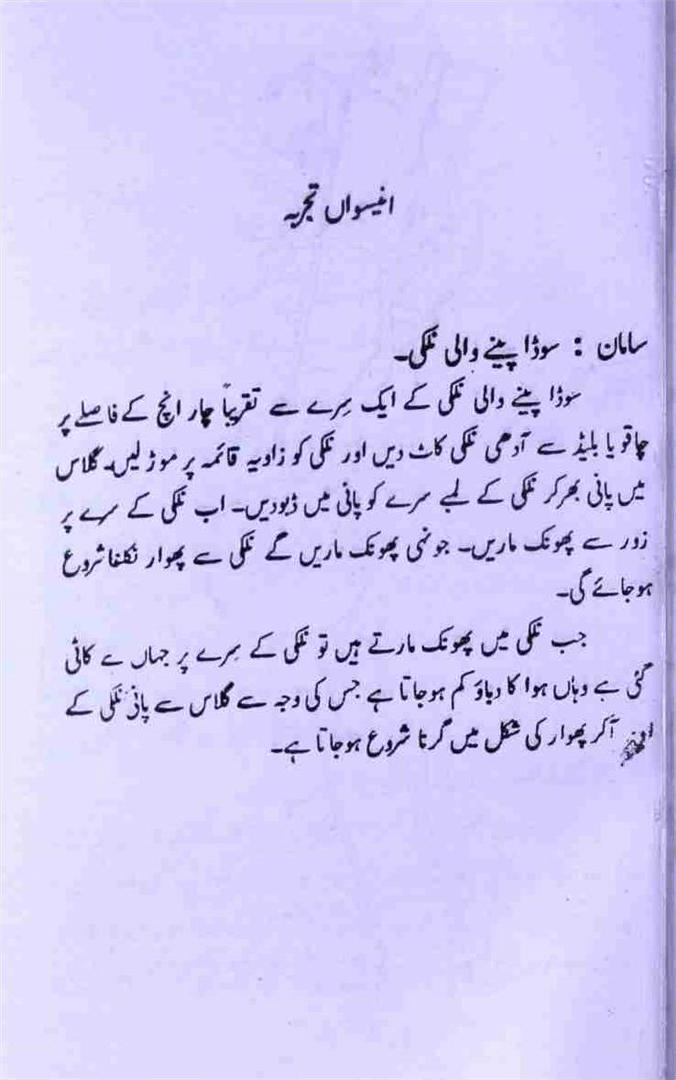 انیسواں تجربہ
سامان : سوڈا پینے والی نلکی۔
سوڈا پینے والی نلکی کے ایک سِرے سے تقریباً چار انچ کے فاصلے پر
چاقو یا بلیڈ سے آدھی نلکی کاٹ دیں اور نلکی کو زاویہ قائمہ پر موڑ لیں۔ گلاس
میں پانی بھر کر نلکی کے لمبے سرے کو پانی میں ڈبودیں۔ اب نلکی کے سرے پر
زور سے پھونک ماریں۔ جونہی پھونک ماریں گے نلکی سے پھوار نکلنا شروع
ہوجائے گی۔
جب نلکی میں پھونک مارتے ہیں تو نلکی کے سِرے پر جہاں سے کاٹی
گئی ہے وہاں ہوا کا دباؤ کم ہوجاتا ہے جس کی وجہ سے گلاس سے پانی نلکی کے
آکر پھوار کی شکل میں گرنا شروع ہوجاتا ہے۔